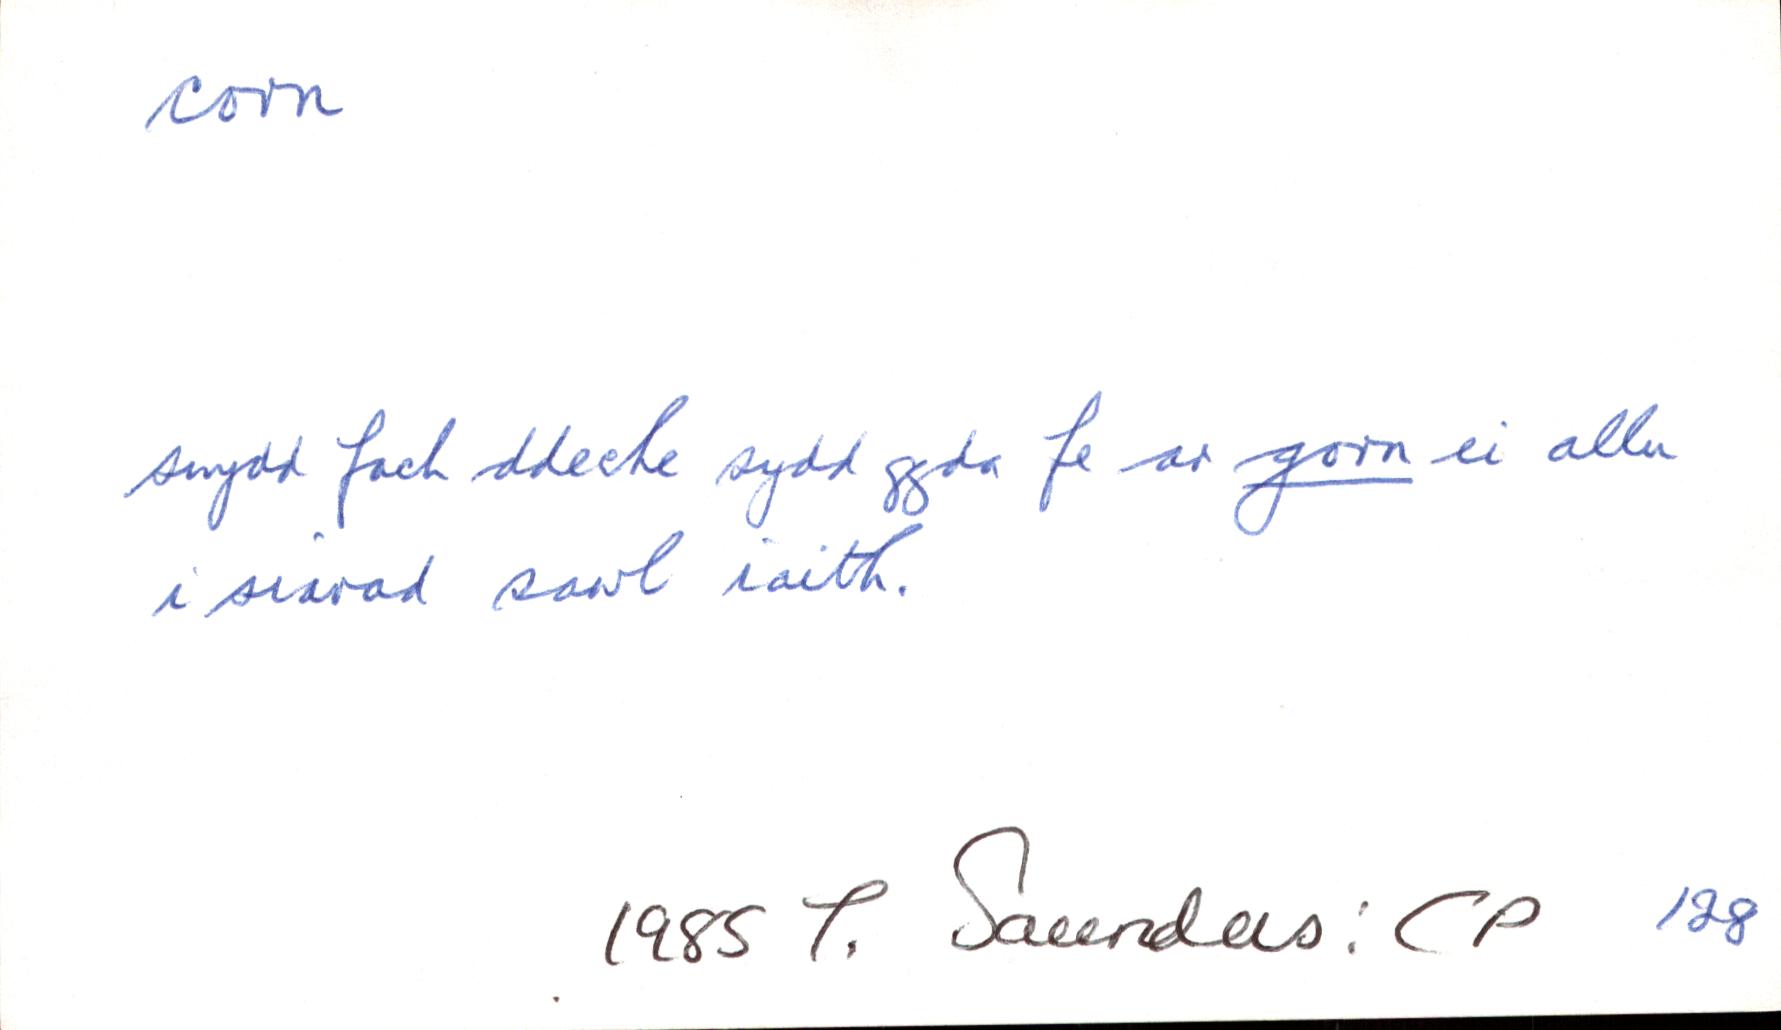 corn
swydd fach ddeche sydd gyda fe ar gorn ei allu
i siarad sawl iaith.
1985 T. Saunders: CP 128